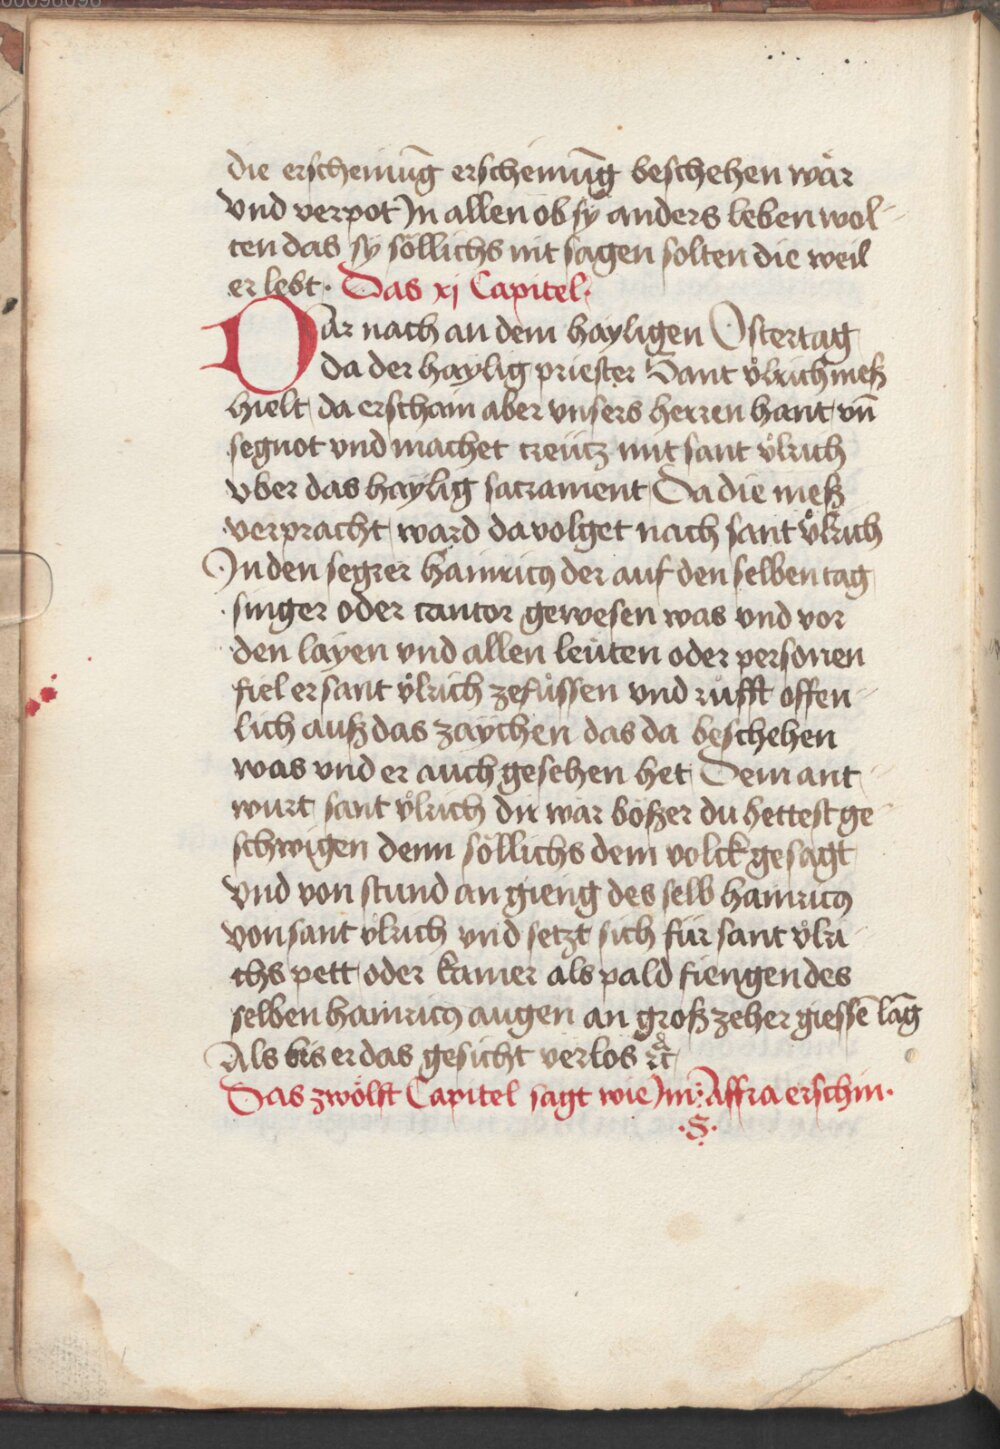 die erscheinūg erscheinūg beschehen wår
vnd verpot In allen ob sÿ anders leben wol-
ten das sÿ söllichs nit sagen solten die weil
er lebt · Das xj Capitel ·
Dar nach an dem hayligen Ostertag
da der haylig priester Sant vͦlrich meß
hielt da erschain aber vnsers herren hant vn̄
segnot vnd machet creütz mit sant vͦlrich
vber das haÿlig sacrament Da die meß
verpracht ward da volget nach sant vͦlrich
In den segrer hainricꝰ der auf den selben tag
singer oder cantor gewesen was vnd vor
den layen vnd allen leüten oder personen
fiel er sant vͦlrich zefüssen vnd rüfft offen-
lich auß das zaÿchen das da beschehen
was vnd er auch gesehen het Dem ant-
wurt sant vͦlrich dir wår bösßer du hettest ge-
schwigen denn söllichs dem volck gesagt
vnd von stund an gieng des selb hainricꝰ
von sant vͦlrich vnd setzt sich für sant vͦlri
chs pett oder kamer als pald fiengen des
selben hainricꝰ augen an groß zeher giessē lāg
Als bis er das gesicht verlos ꝛc
Das zwölft Capitel sagt wie Im · Affra erschin ·
· S ·